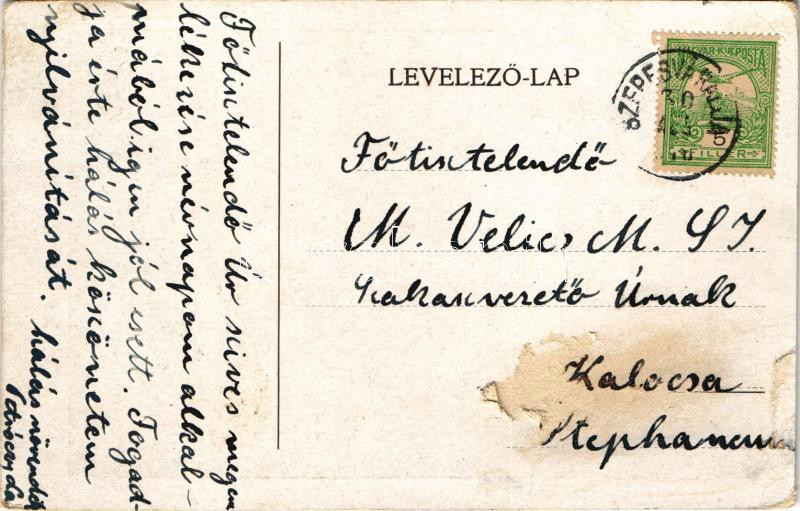 Főtisztelendő Úr szives megem
lékezése névnapom alkal-
mából igen jól esett. Fogad-
ja érte hálás köszönetem
nyilvánitását. hálás növendéke
LEVELEZŐ-LAP
MAGYAR KIR. POSTA
5
FILLÉR
SZEPESVÁRALJA
Főtisztelendő
M. Velics M. SJ.
Szakaszvezető Úrnak
Kalocsa
Stephaneum